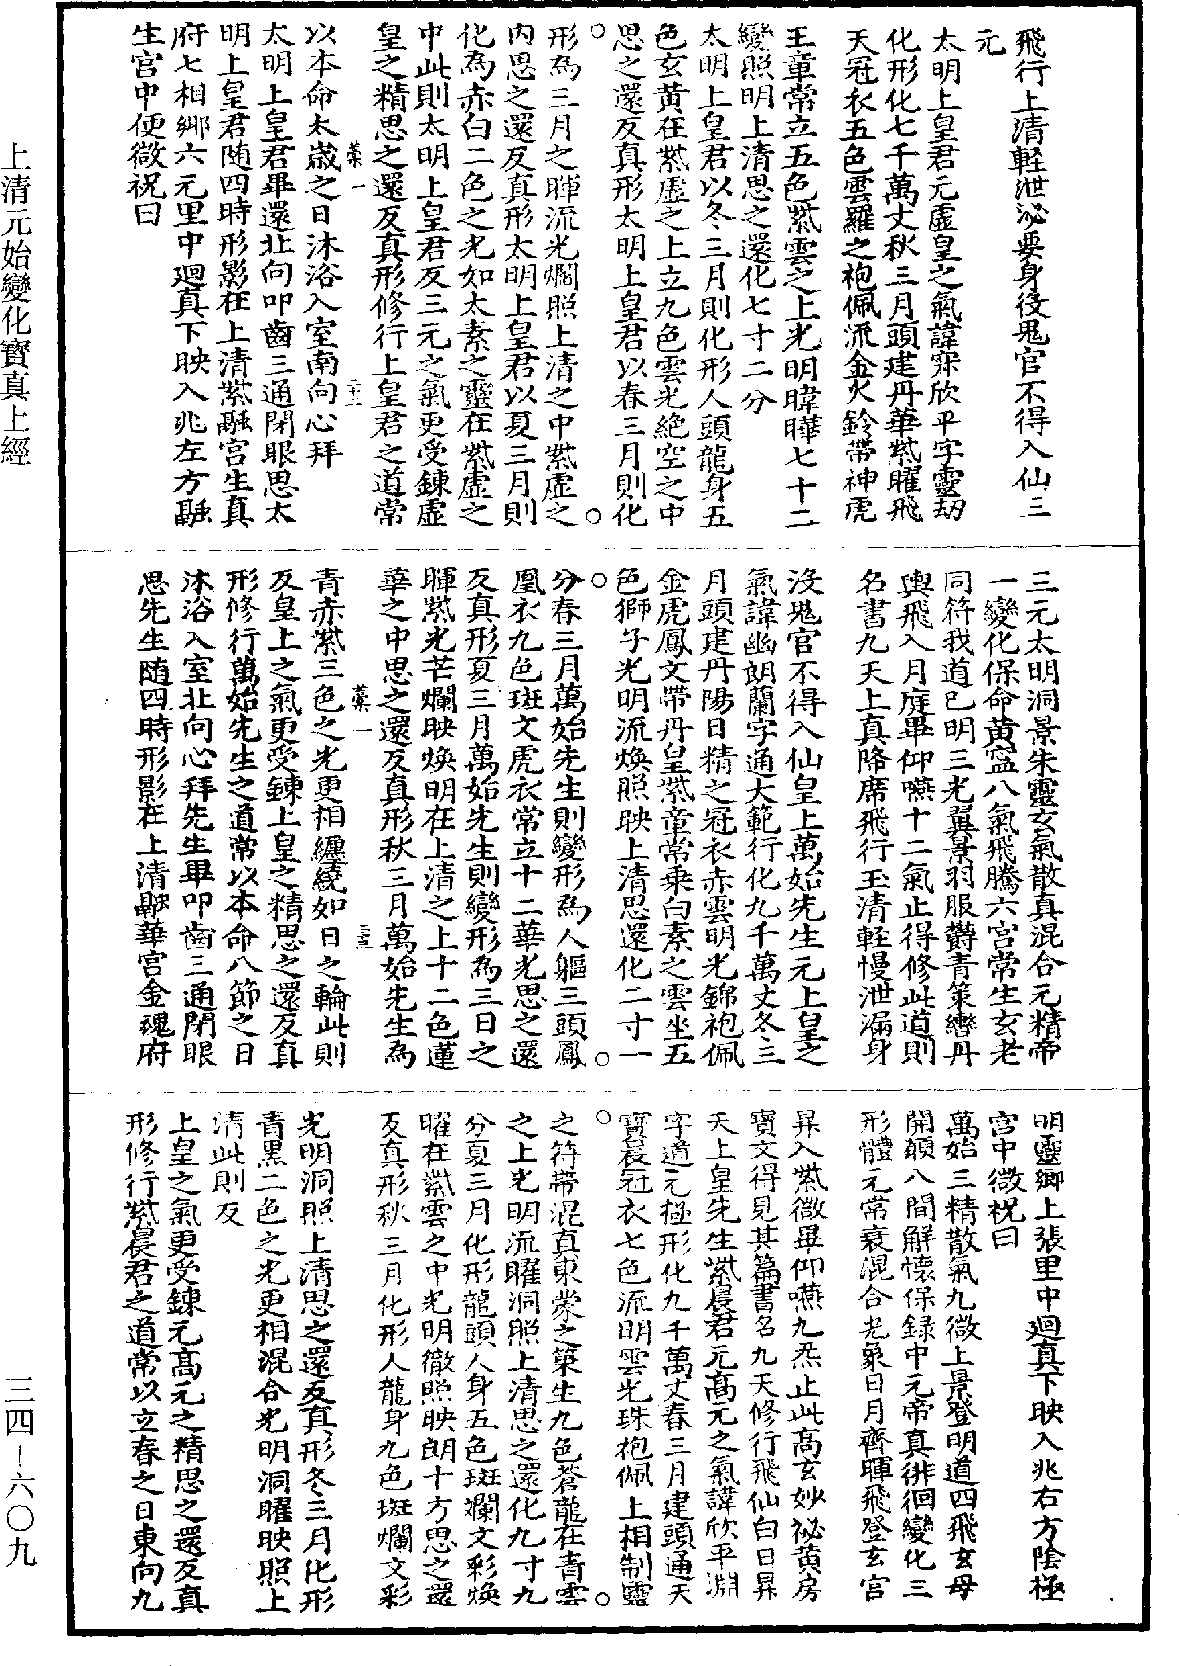 飛行上清輕泄泌要身役鬼官不得入仙三
元
太明上皇君元虛皇之氣諱寀欣平字靈劫
化形化七千萬丈秋三月頭建丹華紫曜飛
天冠衣五色雲羅之袍佩流金火鈴帶神虎
王章常立五色紫雲之上光明暐曄七十二
變照明上清思之還化七寸二分
太明上皇君以冬三月則化形人頭龍身五
色玄黃在紫虛之上立九色雲光絕空之中
思之還反真形太明上皇君以春三月則化
形為三月之暉流光爛照上清之中紫虛之
內思之還反真形太明上皇君以夏三月則
化為赤白二色之光如太素之靈在紫虛之
中此則太明上皇君反三元之氣更受鍊虛
皇之精思之還反真形修行上皇君之道常
以本命太歲之日沐浴入室南向心拜
太明上皇君畢還北向叩齒三通閉眼思太
明上皇君随四時形影在上清紫融宮生真
府七相鄉六元里中廻真下映入兆左方融
生宮中便微祝曰
三元太明洞景朱靈玄氣散真混合元精帝
一變化保命黃寧八氣飛騰六宮常生玄老
同符我道已明三光翼景羽服欝青策轡丹
輿飛入月庭畢仰嚥十二氣止得修此道則
名書九天上真降席飛行玉清輕慢泄漏身
沒鬼官不得入仙皇上萬始先生元上皇之
氣諱幽朗蘭字通大範行化九千萬丈冬三
月頭建丹陽日精之冠衣赤雲明光錦袍佩
金虎鳳文帶丹皇紫章常乗白素之雲坐五
色獅子光明流煥照映上清思還化二寸一
分春三月萬始先生則變形為人軀三頭鳳
凰衣九色斑文虎衣常立十二華光思之還
反真形夏三月萬始先生則變形為三日之
暉紫光芒爛映煥明在上清之上十二色蓮
華之中思之還反真形秋三月萬始先生為
青赤紫三色之光更相纏繞如日之輪此則
反皇上之氣更受鍊上皇之精思之還反真
形修行萬始先生之道常以本命八節之日
沐浴入室北向心拜先生畢叩齒三通閉眼
思先生随四時形影在上清融華宮金魂府
明靈鄉上張里中廻真下映入兆右方陰極
宮中微祝曰
萬始三精散氣九微上景登明道四飛玄母
開頥八間解懷保録中元帝真徘徊變化三
形體元常衰混合光象日月齊暉飛登玄宮
昇入紫微畢仰嚥九炁止此高玄妙祕黃房
寶文得見其篇書名九天修行飛仙白日昇
天上皇先生紫晨君元高元之氣諱欣平淵
字道元極形化九千萬丈春三月建頭通天
寶晨冠衣七色流明雲光珠袍佩上相制靈
之符帶混真東蒙之策生九色蒼龍在青雲
之上光明流曜洞照上清思之還化九寸九
分夏三月化形龍頭人身五色斑斕文彩煥
曜在紫雲之中光明徹照映朗十方思之還
反真形秋三月化形人龍身九色斑斕文彩
光明洞照上清思之還反真形冬三月化形
青黑二色之光更相混合光明洞曜映照上
清此則反
上皇之氣更受鍊元高元之精思之還反真
形修行紫晨君之道常以立春之日東向九
上清元始變化寶真上經
三四－六〇九